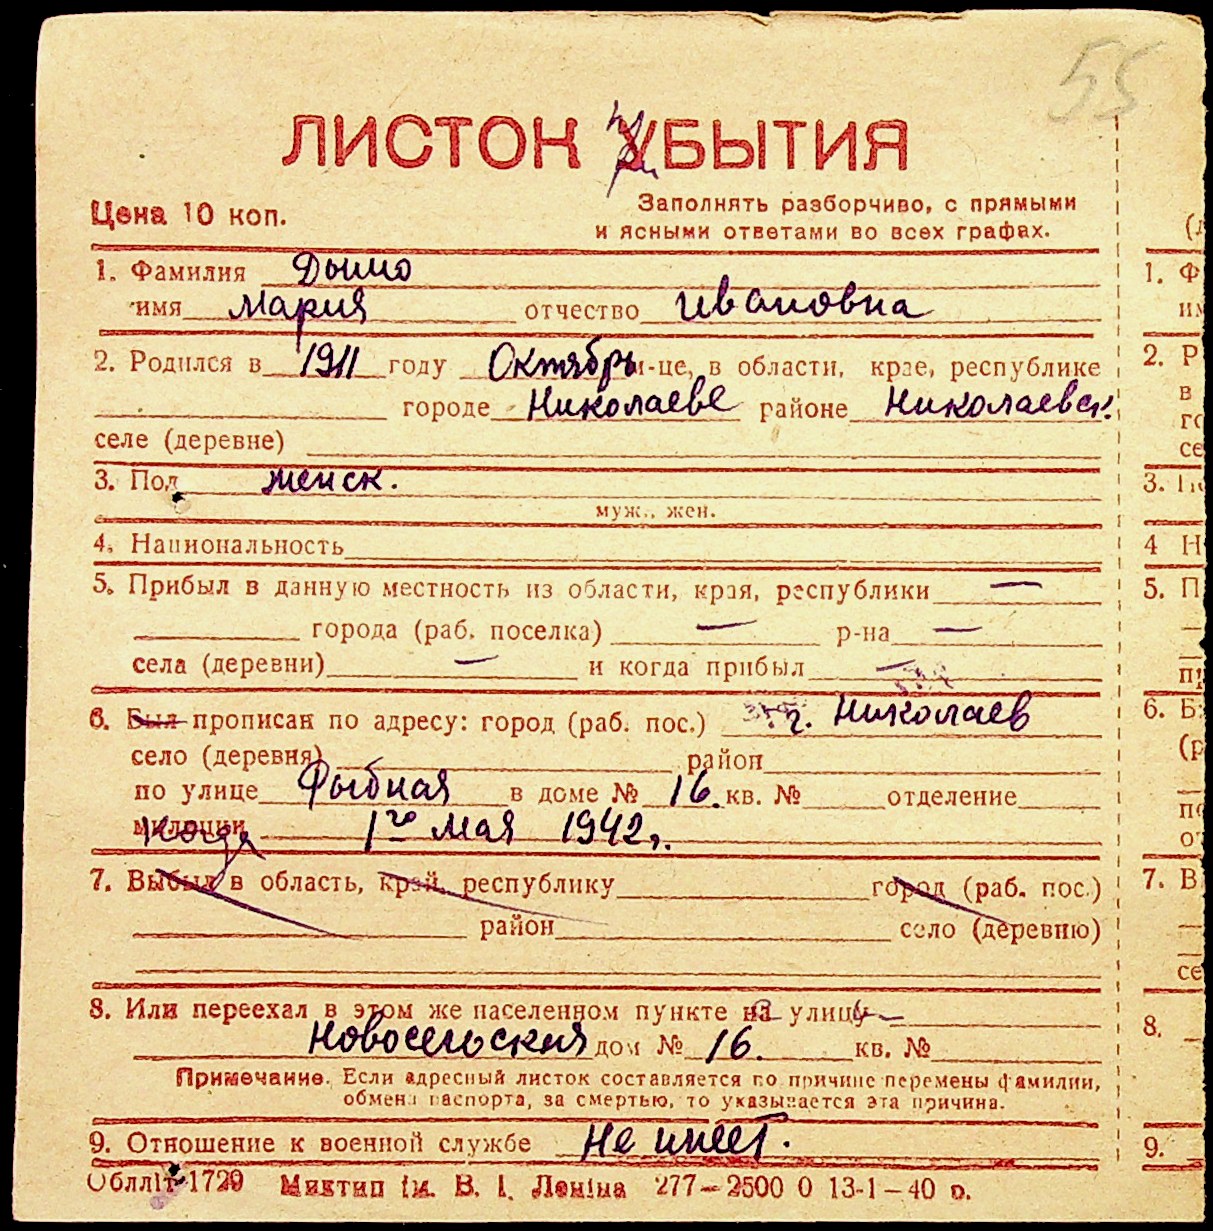 55
ЛИСТОК при УБЫТИЯ
Цена 10 коп.
Заполнять разборчиво, с прямыми
и ясными ответами во всех графах.
1. Фамилия Дымо
имя Мария отчество Ивановна
2. Родился в 1911 году Октябрь м-це, в области, крае, республике
городе Николаеве районе Николаевск.
селе (деревне)
3. Пол женск.
муж., жен.
4. Национальность
5. Прибыл в данную местность из области, края, республики —
города (раб. поселка) — р-на —
села (деревни) — и когда прибыл —
6. Был прописан по адресу: город (раб. пос.) г. Николаев
село (деревня) район
по улице Рыбная в доме № 16. кв. № отделение
милиции Когда 1го мая 1942 г.
7. Выбыл в область, край, республику город (раб. пос.)
район село (деревню)
8. Или переехал в этом же населенном пункте на улицу —
Новосельская дом № 16. кв. №
Примечание. Если адресный листок составляется по причине перемены фамилии,
обмена паспорта, за смертью, то указывается эта причина.
9. Отношение к военной службе Не имеет.
Обллiт 1729 Миктип iм. В. I. Ленiна 277—2500 0 13-1—40 р.
1. Ф
им
2. Р
в
го
се
3. По
4 Н
5. П
пр
6. Б
(р
по
о
7. В
се
8.
9.